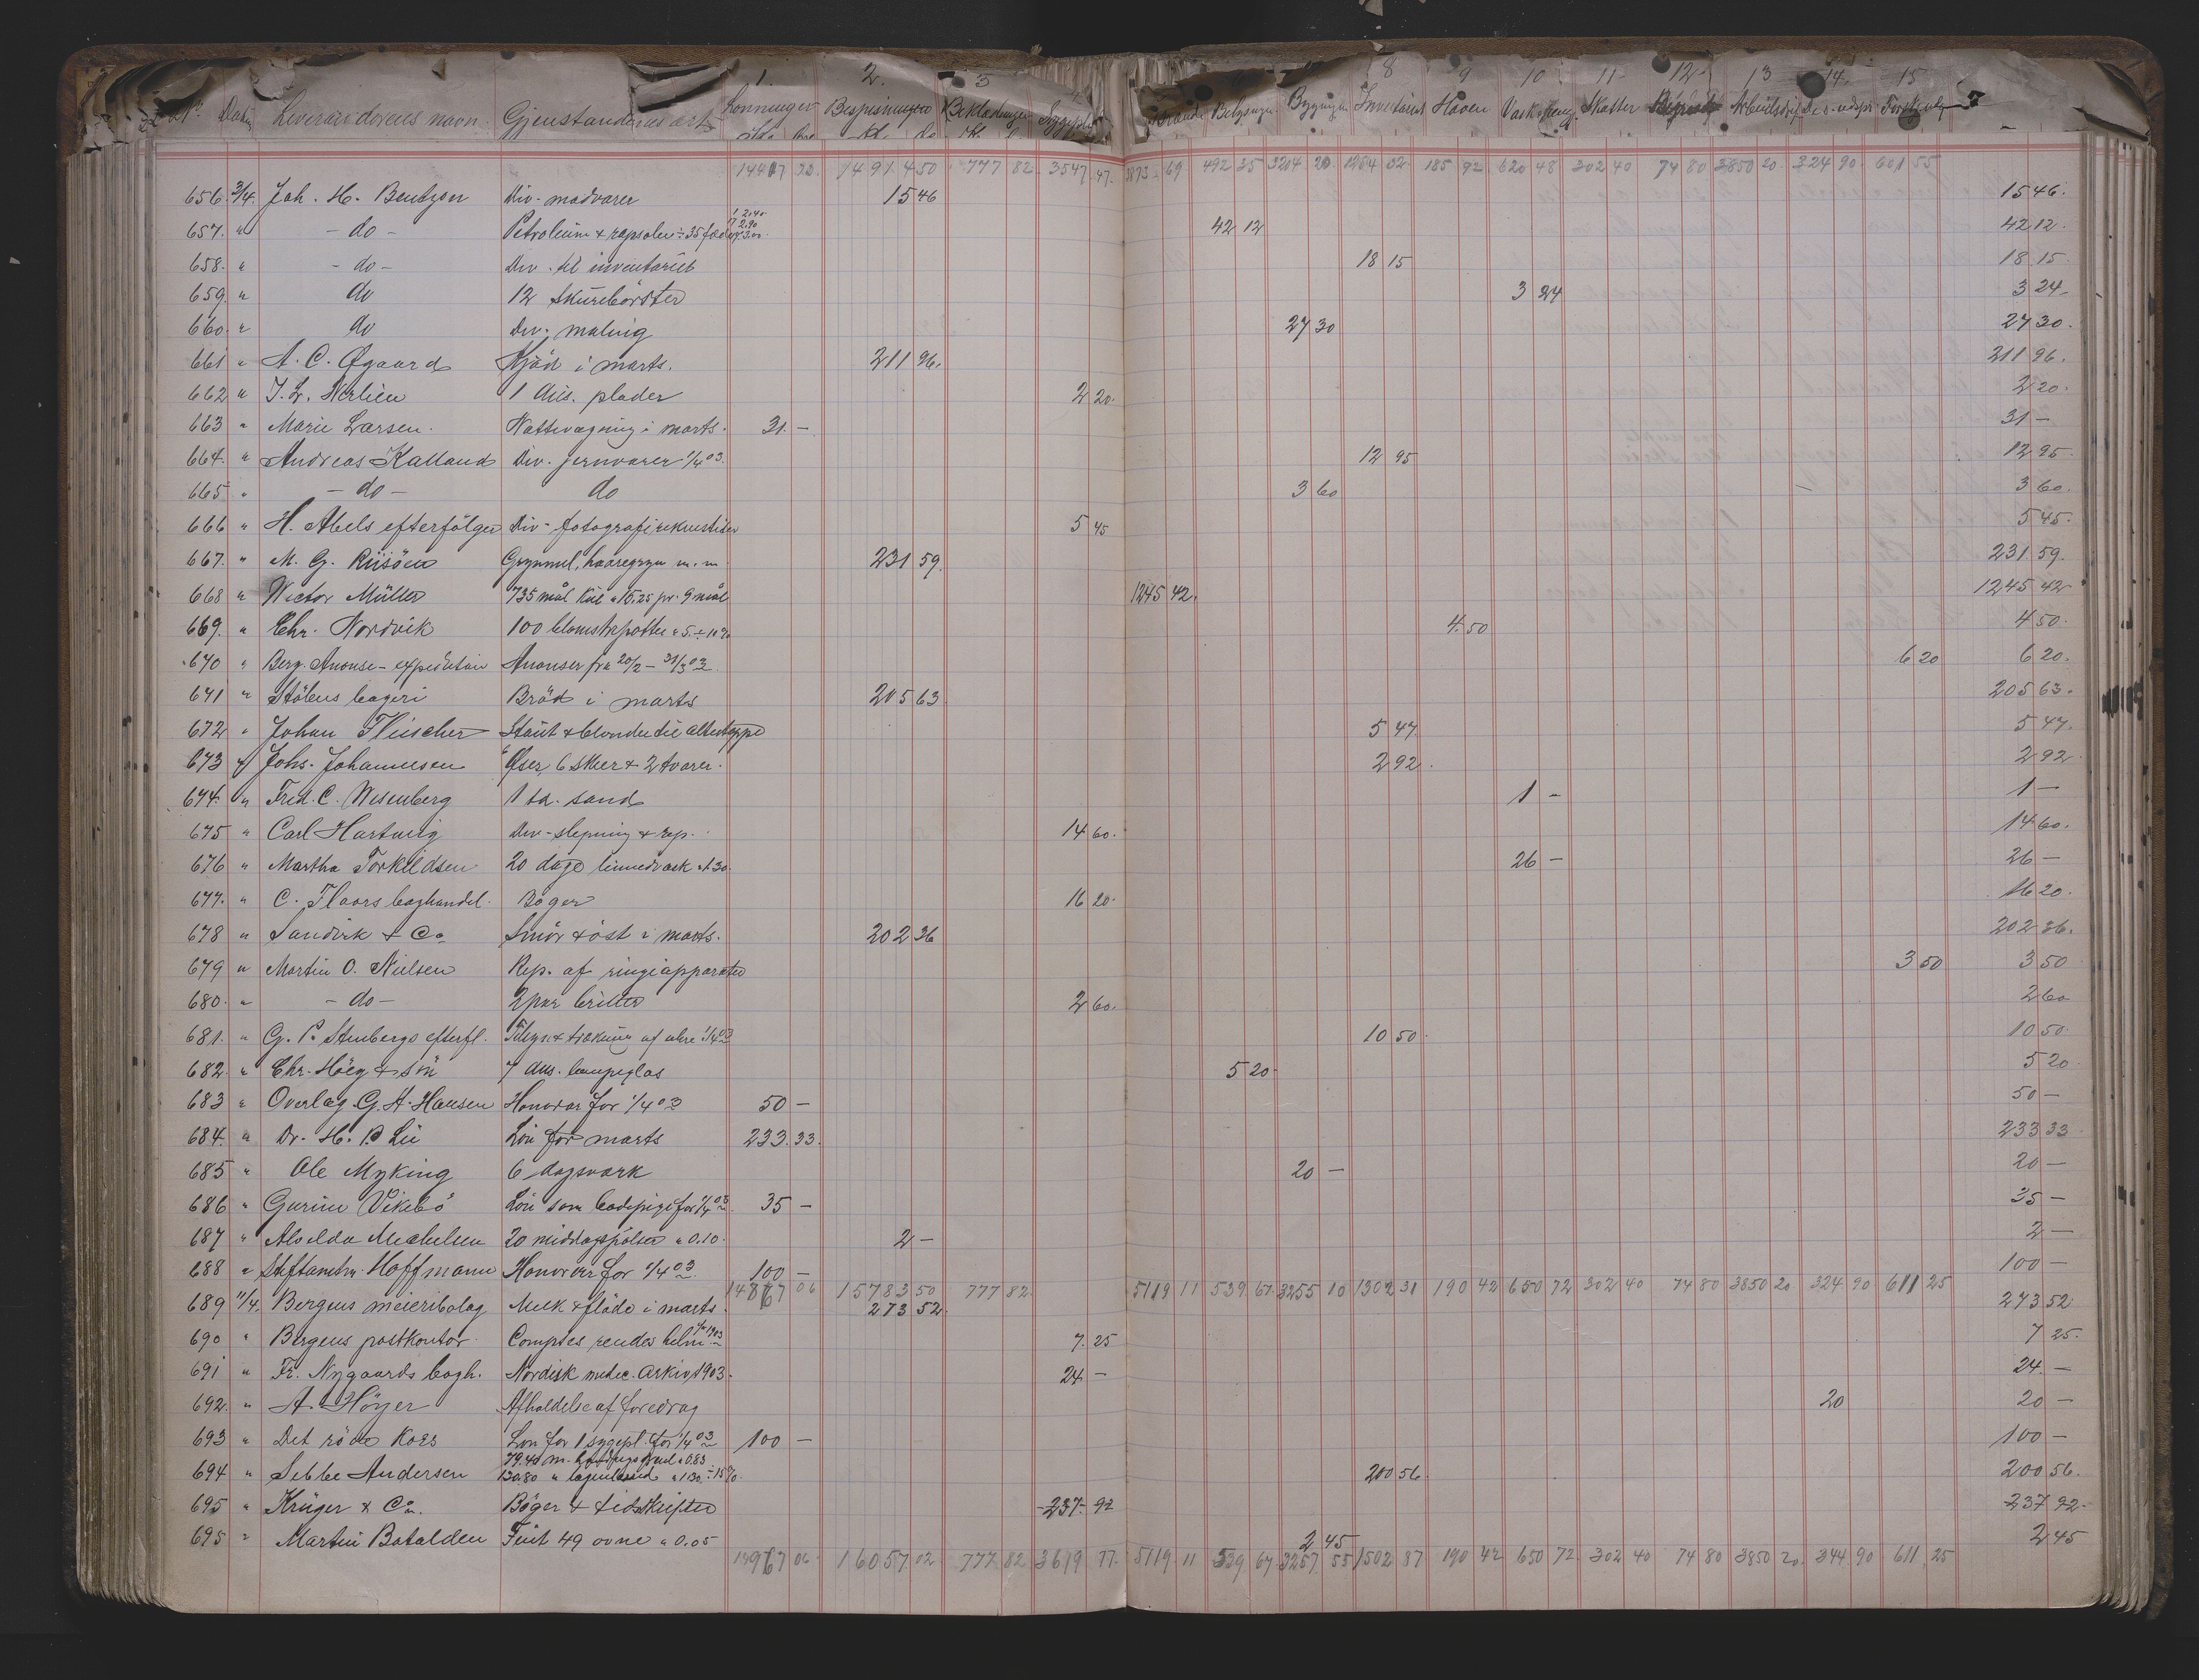 1. 2. 3 8 9 10 11 12 13 14. 15
No Datum Leverandørens navn. Gjenstandens art Lønninger Bespisningen Beklædningen Sygepl. Brænde Belysningen Bygningen Inventariet Haven Vask Skatter Arbeidsdrift Forskjellig
14417 1491450 777 82 3547 47. 69 492 35 3204 20 1264 02 185 92 620 48 302 40 74 80 3850 20. 324 90. 601 55
656. 3/4. Joh. H. Bentzon Div. madvarer 15 46 15 46.
657. " - do - Petroleum & rapsolie ÷ 35 42 12 42 12.
658. " - do - Div. til inventariet 18 15 18 15
659. " do 12 Skurebörster 3 24 3 24
660. " do Div. maling 27 30 27 30.
661 " A. C. Øgaard Kjöd i marts. 211 96. 211 96.
662 " J. L. Nerlien 1 dus. plader 2 20. 2 20.
663 " Marie Larsen. Nattevagning i marts. 31. - 31 -
664. " Andreas Kalland Div. jernvarer 1/4 03. 12 95 12 95.
665 " - do - do 3 60 3 60.
666 " H. Abels efterfölger Div. fotografirekvisiter 5 45 5 45.
667. " M. G. Riisöen Grynmel, havregryn m. m. 231 59. 231 59.
668 " Victor Müller 735 mål kul a 15.25 pr. 9 mål 1245 42. 1245 42
669. " Chr. Nordvik 100 blomsterpotter a 5. ÷ 10% 4.50 4 50.
670 " Berg. Anonse-expedition Anonser fra 20/2 - 31/3 03. 6 20 6 20.
671 " Stöbers bageri Bröd i marts 205 63 205 63.
672 " Johan Fleischer Staut & blonder til altertæppe 5 47. 5 47.
673 " Johs. Johannesen 6 Öser, 6 skeer & 2 tvarer. 2 92. 2 92.
674. " Fred. C. Wesenberg 1 td. sand 1 - 1 -
675 " Carl Hartwig Div. slepning & rep. 14 60. 14 60.
676 " Martha Torkildsen 20 dage linnedvask a 1.30. 26 - 26 -
677. " C. Floors boghandel. Böger 16 20. 16 20.
678 " Sandvik & Co Smör & ost i marts. 202 36 202 36.
679 " Martin O. Nielsen Rep. af ringeapparater 3 50 3 50
680. " - do - 2 par briller 2 60. 2 60
681. " G. P. Stenbergs efterfl. Tilsyn & trækning af uhre 1/4 03 10 50. 10 50.
682. " Chr. Höeg & sön 7 dus. lampeglas 5 20. 5 20
683 " Overlæg G. A. Hansen Honorar for 1/4 03 50 - 50 -
684. " Dr. H. P. Lie Lön for marts 233. 33. 233 33
685 " Ole Myking 6 dagsværk 20 - 20 -
686 " Gurine Vikebö Lön som badepige for 1/4 03. 35 - 35 -
687 " Alvilda Michelsen 20 middagspölser a 0.10. 2 - 2 -
688 " Stiftamtm. Hoffmann Honorar for 1/4 03 100 - 100 -
14867 06 15783 50 777 82. 5119 11 539 67. 3255 10 1302 31 190 42 650 72 302 40 74 80 3850 20 324 90 611 25
689 11/4. Bergens meieribolag Melk & flöde i marts. 273 52. 273 52
690 " Bergens postkontor. Comptes rendus 7. 25 7 25.
691 " Fr. Nygaards bogh. Nordisk medic. arkiv 1903. 24 - 24. -
692. " A. Höyer Afholdelse af foredrag 20 20 -
693 " Det röde Kors Lön for 1 sygepl. for 1/4 03 100 - 100 -
694 " Sebbe Andersen 79.40 m. a 0.83
130.80 " lagenlærred a 1.30. ÷ 15%. 200 56. 200 56.
695 " Krüger & Co. Böger & tidsskrifter 237. 92 237 92.
695 " Martin Batalden Feiet 49 ovne a 0.05 2 45 2 45
14967 06. 16057 02 777. 82 3619 77. 5119 11 539 67 3257 55 1502 87 190 42 650 72 302 40 74 80 3850 20. 344 90 611 25